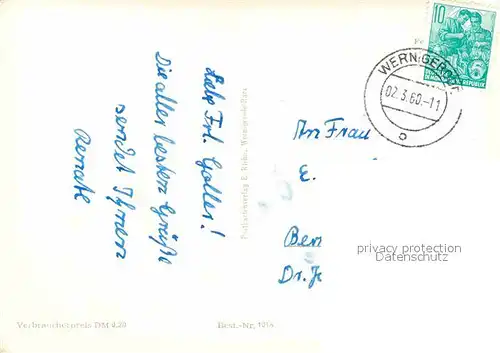 Liebe Frl. Goller!
Die aller besten Grüße
sendet Ihnen
Renate
An Frau
E.
Ben
Dr. Je
10
WERNIGERODE
02.3.60.-11
b
Postkartenverlag E. Riehn, Wernigerode/Harz
privacy protection
Datenschutz
Verbraucherpreis DM 0,20
Best.-Nr. 1015